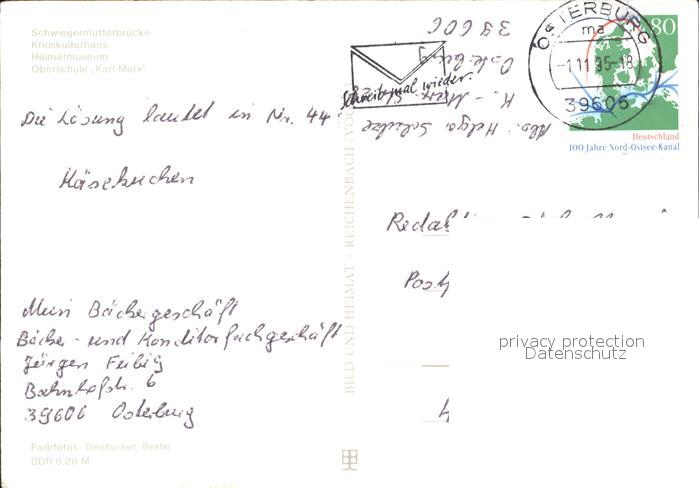 Schwiegermutterbrücke
Kreiskulturhaus
Heimatmuseum
Oberschule „Karl Marx"
Die Lösung lautet in Nr. 44:
Käsekuchen
Mein Bäckergeschäft
Bäcker- und Konditorfachgeschäft
Jürgen Feibig
Bahnhofstr. 6
39606 Osterburg
Farbfotos: Deutscher, Berlin
DDR 0,20 M
BILD UND HEIMAT · REICHENBACH
Abs. Helga Schulze
K.-Marx
Osterburg
39606
Schreib mal wieder.
OSTERBURG
ma
-1.11.95-18
39606
80
Deutschland
100 Jahre Nord-Ostsee-Kanal
privacy protection
Datenschutz